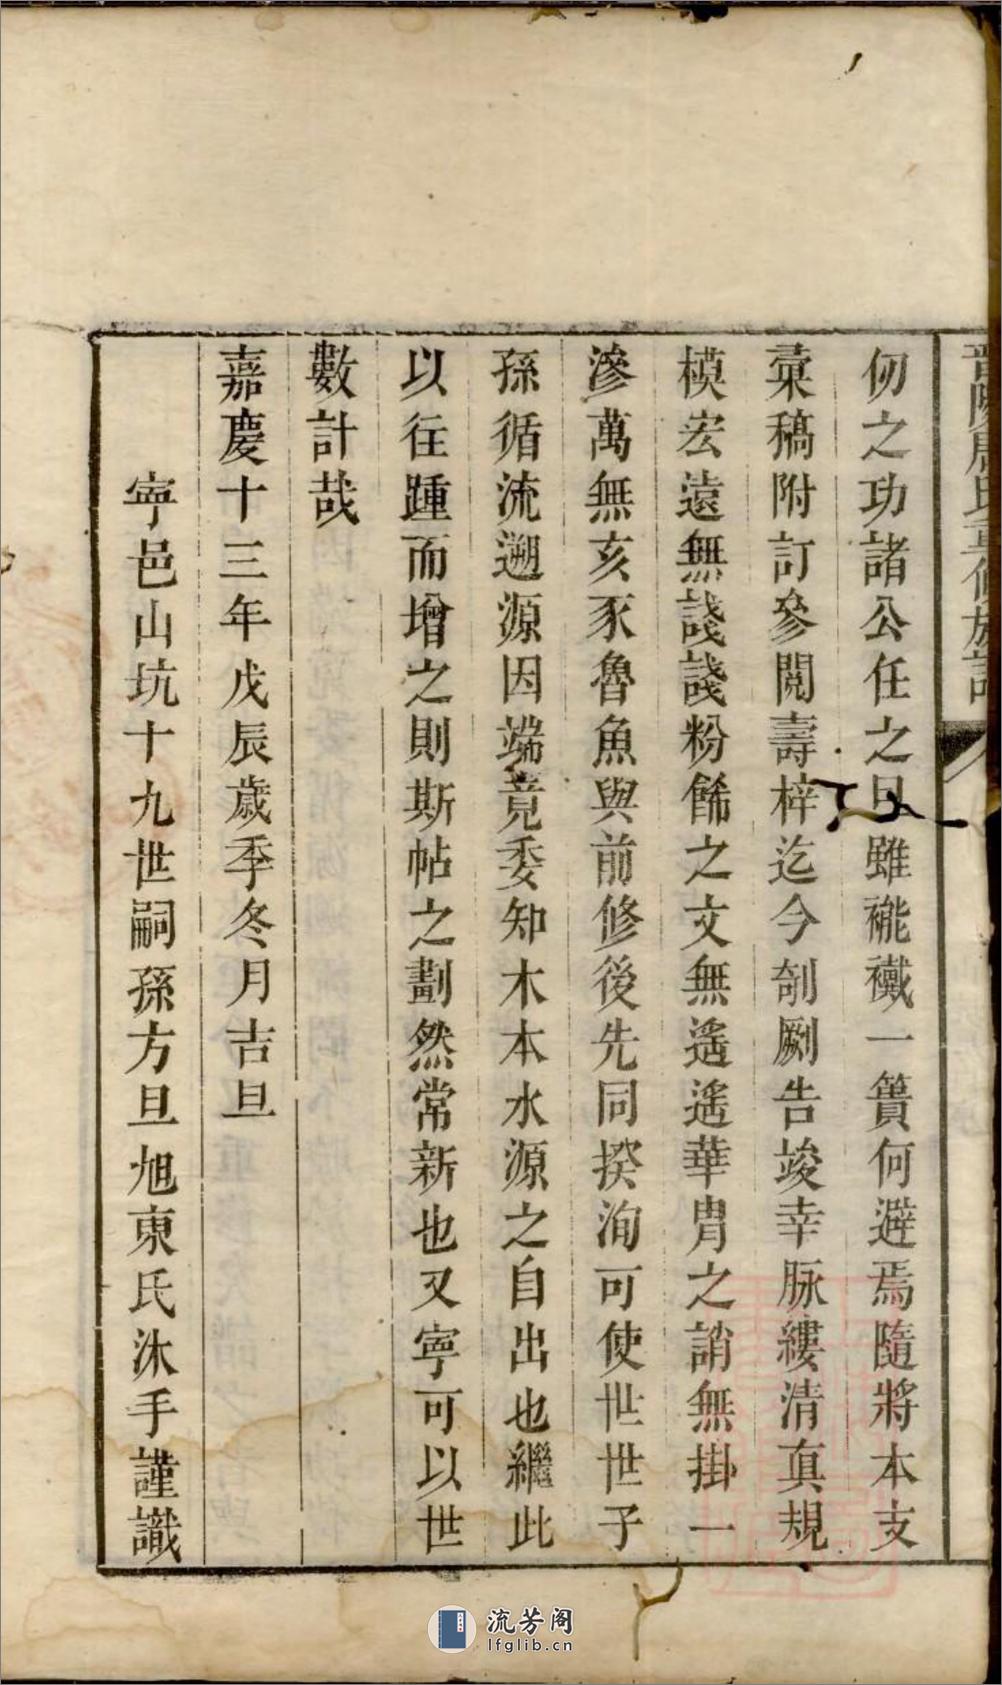 晉陵周氏重修族譜
仞之功諸公任之旦雖褦襶一簣何避焉隨將本支
彙稿附訂參閲壽梓迄今剞劂告竣幸脉縷清眞規
模宏遠無諓諓粉餙之文無遙遙華胄之誚無掛一
滲萬無亥豕魯魚與前修後先同揆洵可使世世子
孫循流遡源因端竟委知木本水源之自出也繼此
以往踵而增之則斯帖之劃然常新也又寕可以世
數計哉
嘉慶十三年戊辰歲季冬月吉旦
寕邑山坑十九世嗣孫方旦旭東氏沐手謹識
流芳阁
lfglib.cn